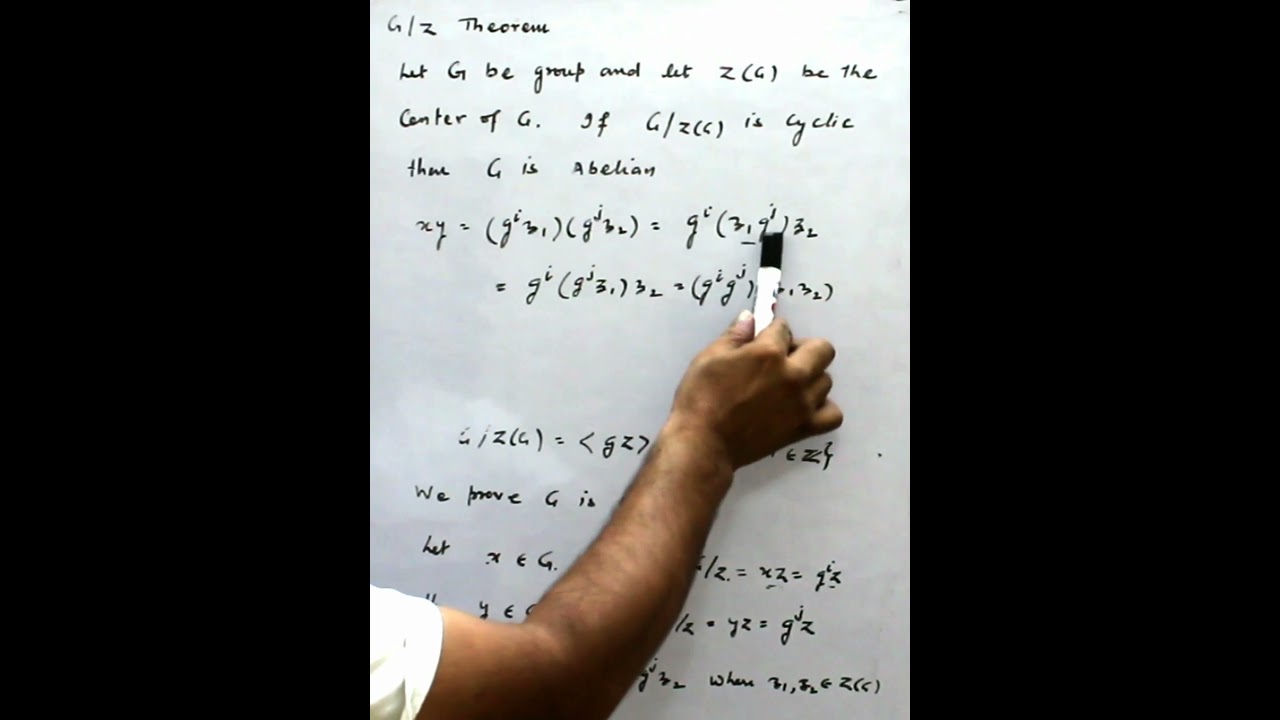 G/Z Theorem
Let G be group and let Z(G) be the
Center of G. If G/Z(G) is Cyclic
then G is Abelian
xy = (g^i z₁)(g^j z₂) = g^i (z₁g^j) z₂
= g^i (g^j z₁) z₂ = (g^i g^j) z₂)
G/Z(G) = <gZ> ∈ ℤ}
We prove G is
Let x ∈ G. /Z. = xZ = g^i Z
y ∈ /Z = yZ = g^j Z
g^j z₂ where z₁, z₂ ∈ Z(G)